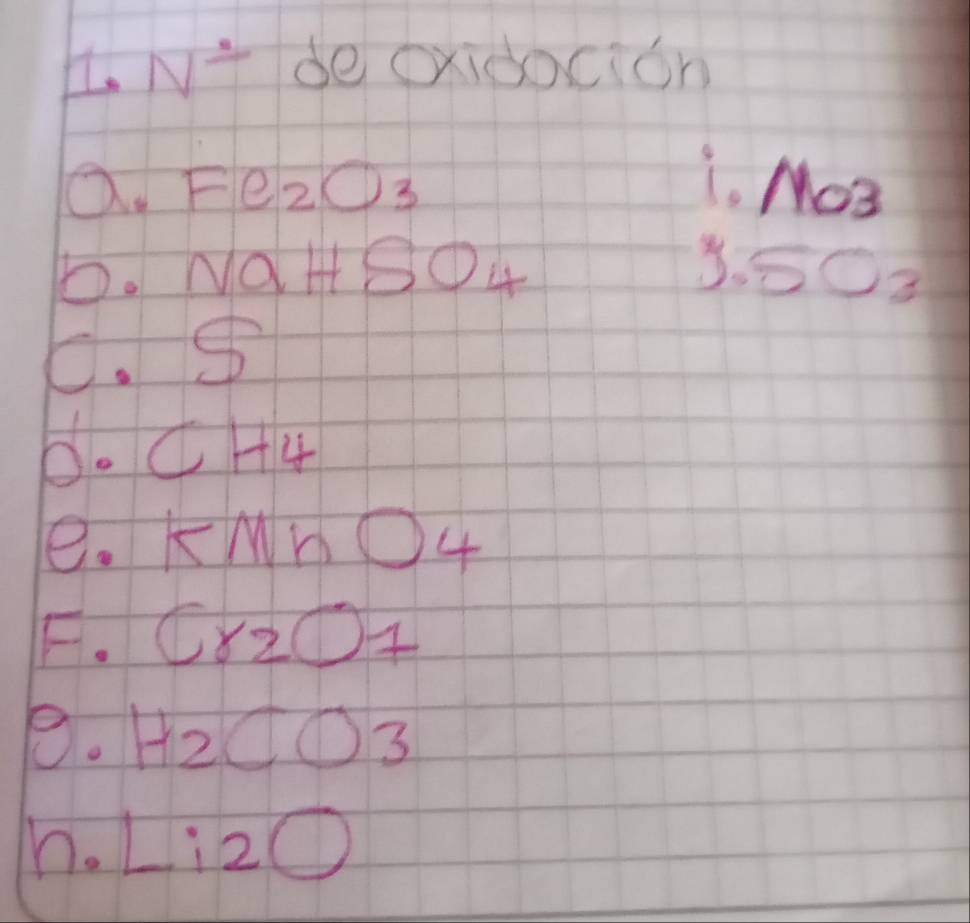 1. Nº de oxidación
a. Fe2O3
b. NaHSO4
c. S
d. CH4
e. KMnO4
F. Cr2O7
g. H2CO3
h. Li2O
i. Mo3
j. SO3